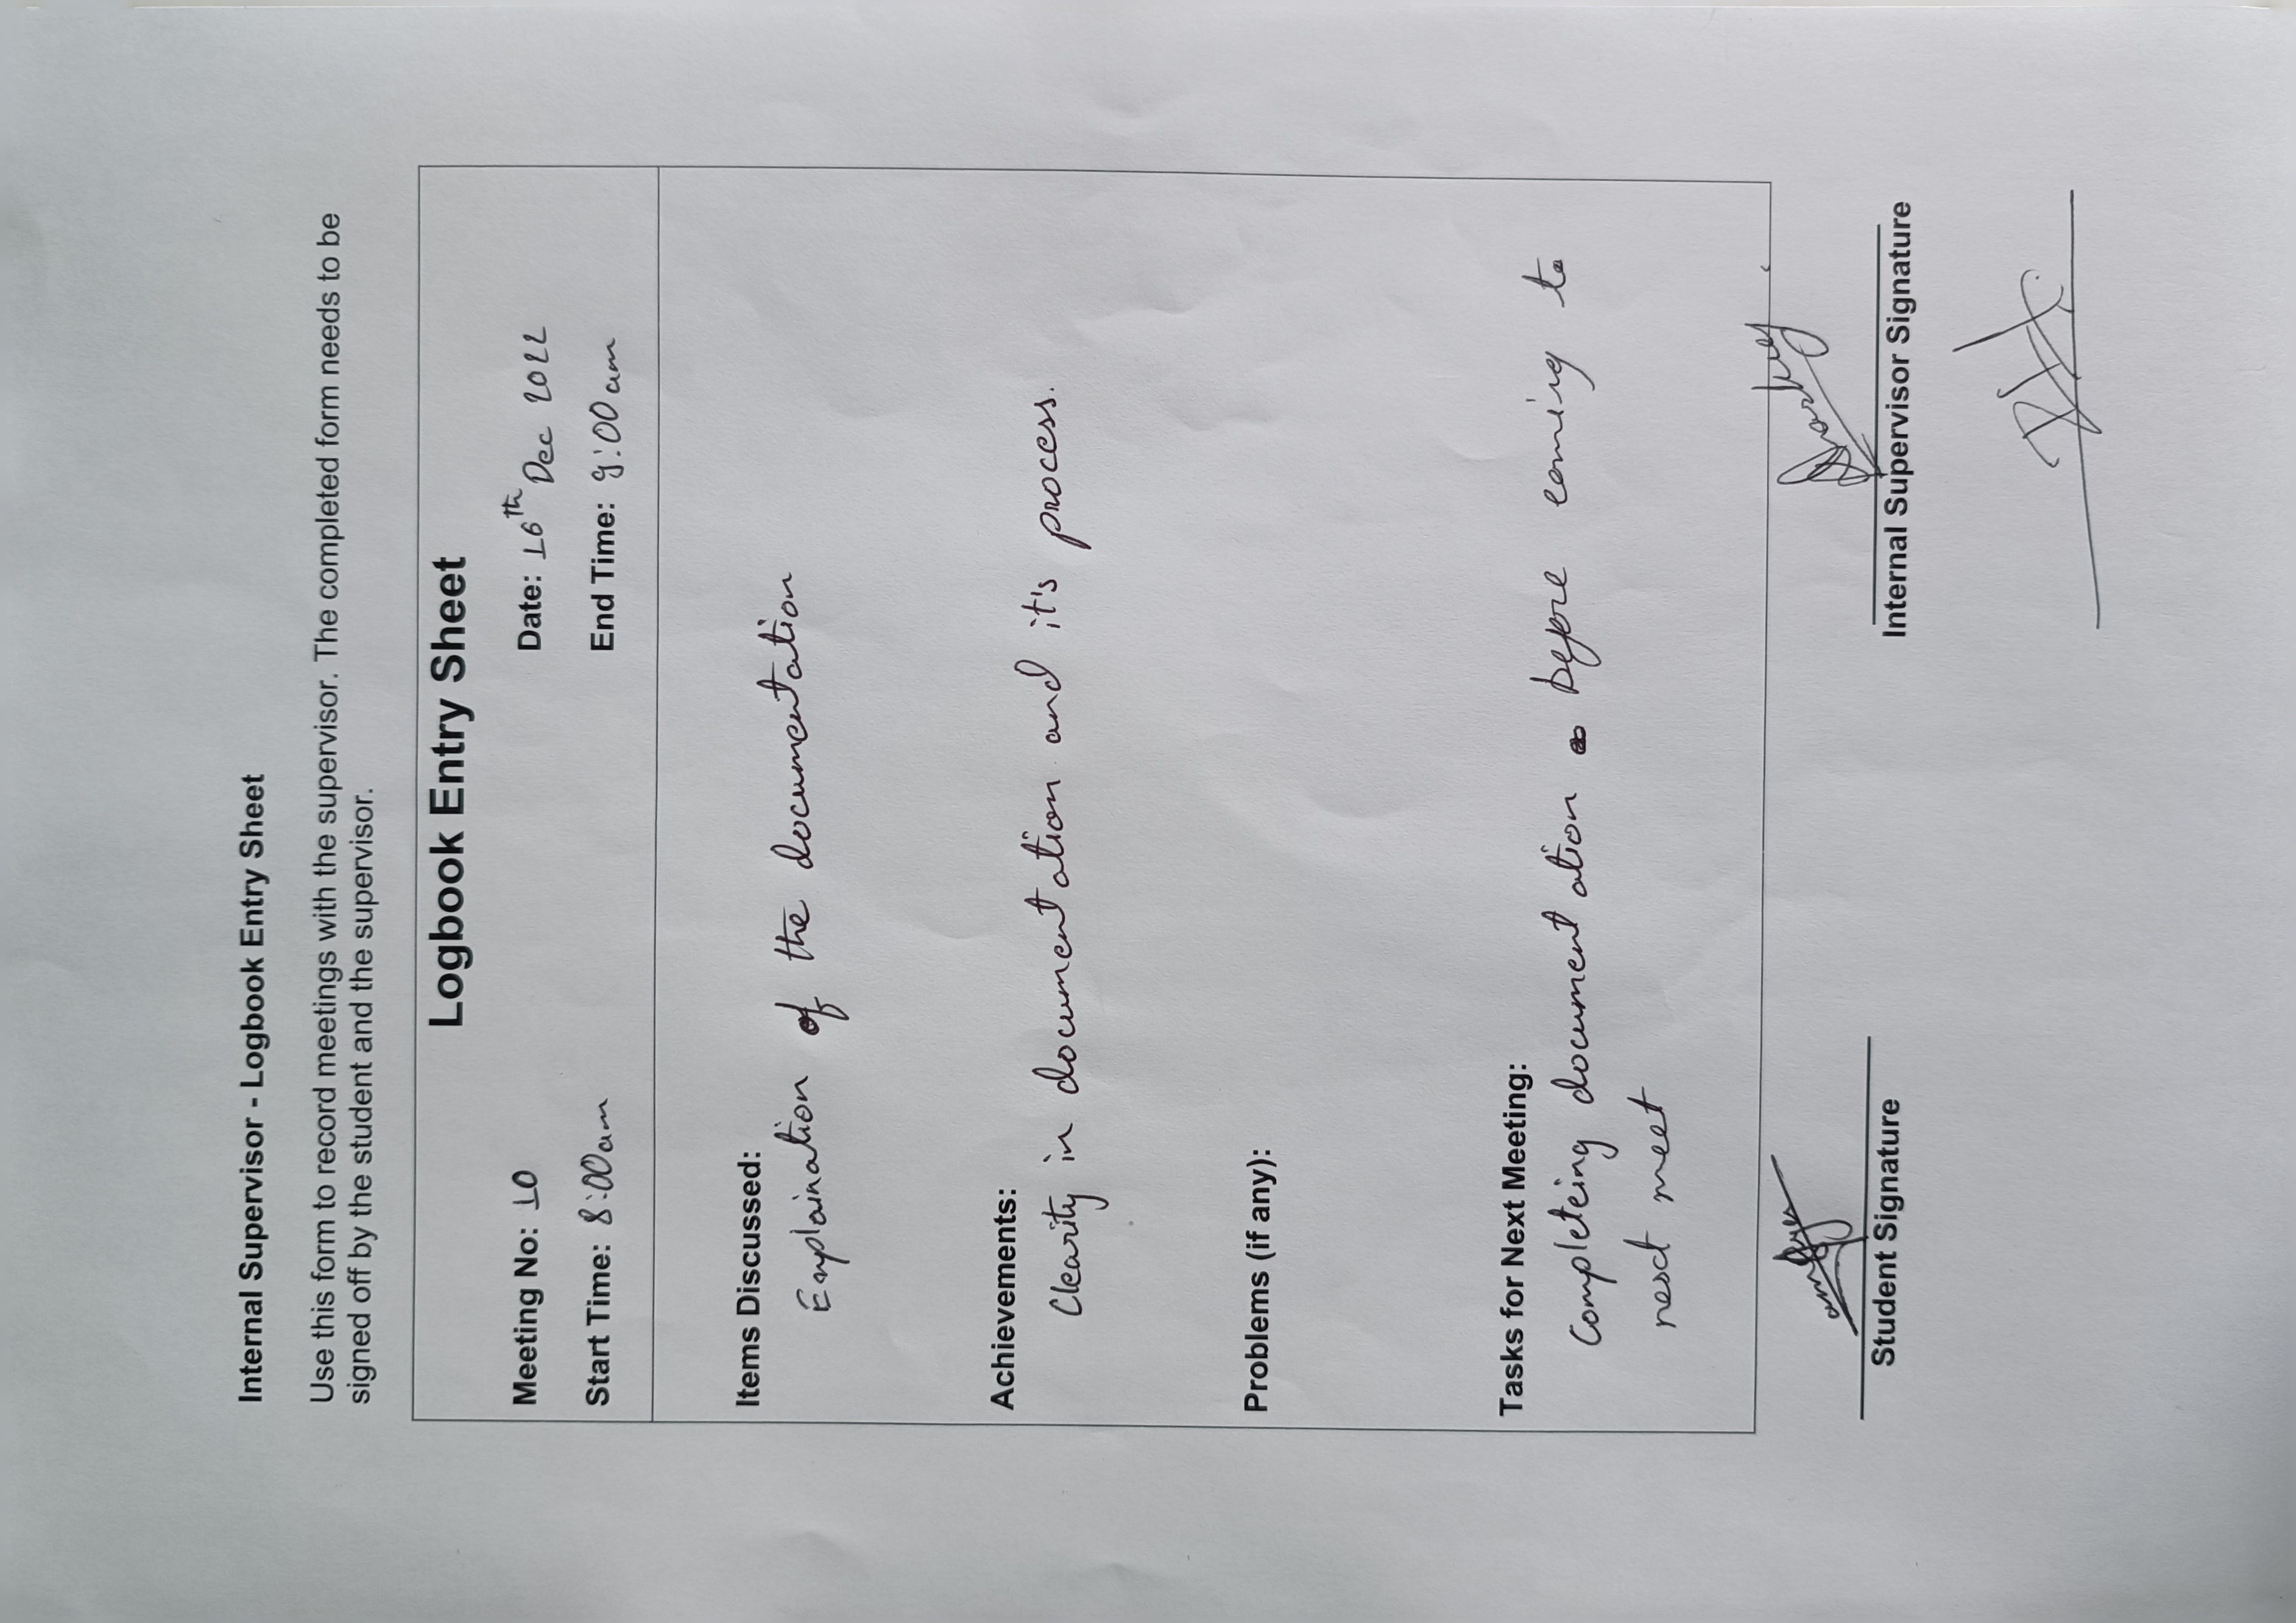 Internal Supervisor - Logbook Entry Sheet
Use this form to record meetings with the supervisor. The completed form needs to be
signed off by the student and the supervisor.
Logbook Entry Sheet
Meeting No: 10 Date: 16th Dec 2022
Start Time: 8:00am End Time: 9:00am
Items Discussed:
Explaination of the documentation
Achievements:
Clearity in documentation and it's process.
Problems (if any):
Tasks for Next Meeting:
Completeing documentation before coming to
next meet
Student Signature Internal Supervisor Signature